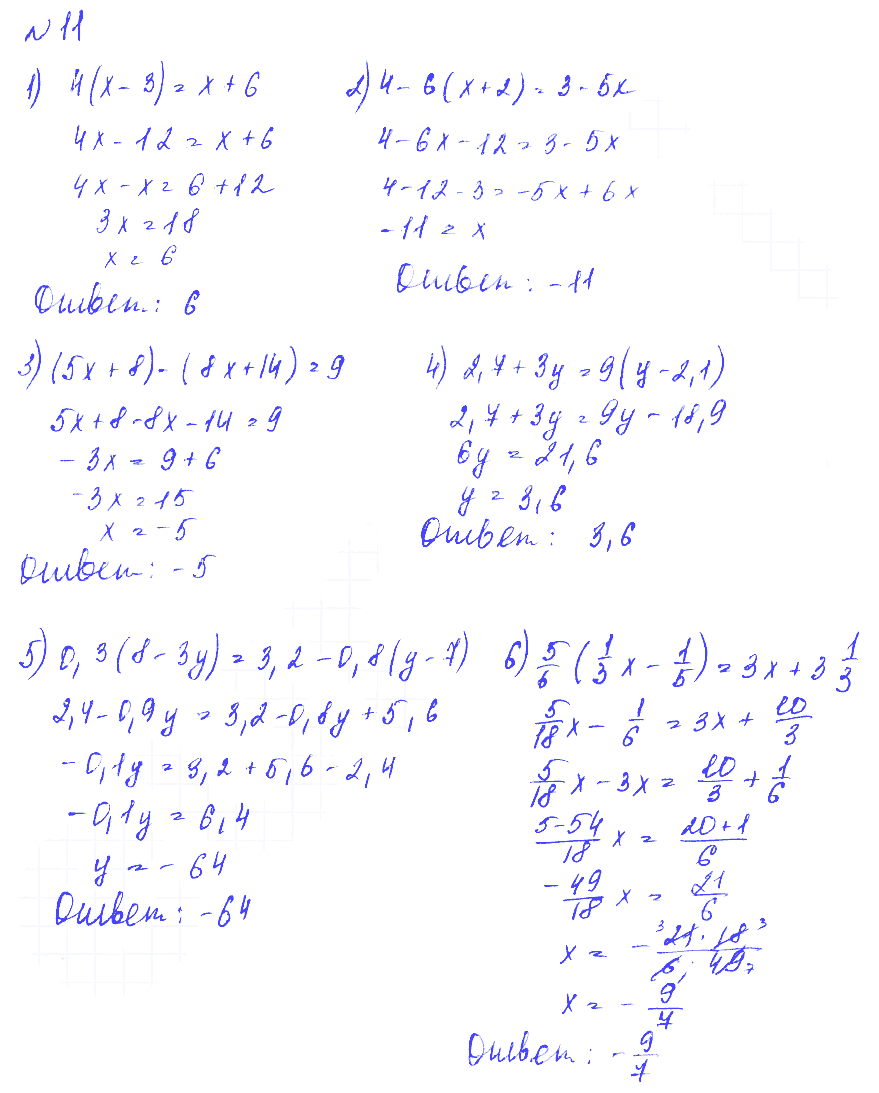 № 11
1) 4(x - 3) = x + 6
4x - 12 = x + 6
4x - x = 6 + 12
3x = 18
x = 6
Ответ: 6
2) 4 - 6(x + 2) = 3 - 5x
4 - 6x - 12 = 3 - 5x
4 - 12 - 3 = -5x + 6x
-11 = x
Ответ: -11
3) (5x + 8) - (8x + 14) = 9
5x + 8 - 8x - 14 = 9
-3x = 9 + 6
-3x = 15
x = -5
Ответ: -5
4) 2,7 + 3y = 9(y - 2,1)
2,7 + 3y = 9y - 18,9
6y = 21,6
y = 3,6
Ответ: 3,6
5) 0,3(8 - 3y) = 3,2 - 0,8(y - 7)
2,4 - 0,9y = 3,2 - 0,8y + 5,6
-0,1y = 3,2 + 5,6 - 2,4
-0,1y = 6,4
y = -64
Ответ: -64
6) 5/6 (1/3 x - 1/5) = 3x + 3 1/3
5/18 x - 1/6 = 3x + 10/3
5/18 x - 3x = 10/3 + 1/6
5-54/18 x = 20+1/6
-49/18 x = 21/6
x = - ³21 · 18³/6 · 49₇
x = - 9/7
Ответ: - 9/7